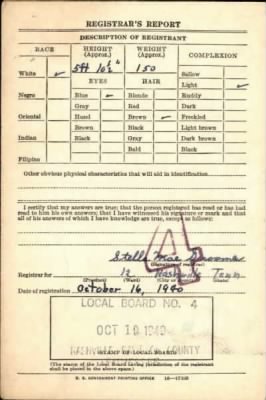 REGISTRAR'S REPORT
DESCRIPTION OF REGISTRANT
RACE HEIGHT (Approx.) WEIGHT (Approx.) COMPLEXION
White ✓ 5ft 10½" 150 Sallow
Light ✓
EYES HAIR
Negro Blue ✓ Blonde Ruddy
Gray Red Dark
Oriental Hazel Brown ✓ Freckled
Brown Black Light brown
Indian Black Gray Dark brown
Bald Black
Filipino
Other obvious physical characteristics that will aid in identification
I certify that my answers are true; that the person registered has read or has
had read to him his own answers; that I have witnessed his signature or mark and that
all of his answers of which I have knowledge are true, except as follows:
Stella Mae
Registrar for 12 Nashville Tenn
(Precinct) (Ward) (City or County)
Date of registration October 16, 1940
LOCAL BOARD NO. 4
OCT 1940
NASHVILLE COUNTY
STAMP OF LOCAL BOARD
(The stamp of the Local Board having jurisdiction of the registrant shall
be placed in the above space.)
U. S. GOVERNMENT PRINTING OFFICE